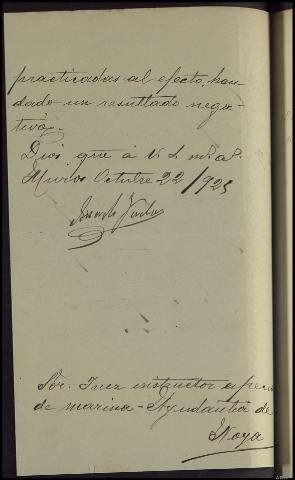 practicadas al efecto, han
dado un resultado nega-
tivo.
Dios gue á V. S. ms as.
Muros Octubre 22/925
Sor. Juez instructor
de marina - Ayudantía de
Noya